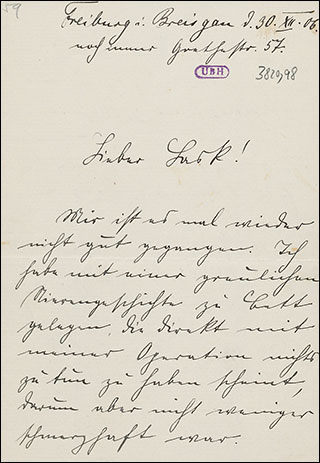 59
Freiburg i. Breisgau d. 30. XII. 06.
noch immer Goethestr. 57.
UBH
3820,98
Lieber Lask!
Mir ist es mal wieder
nicht gut gegangen. Ich
habe mit einer greulichen
Nierengeschichte zu Bett
gelegen, die direkt mit
meiner Operation nichts
zu tun zu haben scheint,
darum aber nicht weniger
schmerzhaft war.